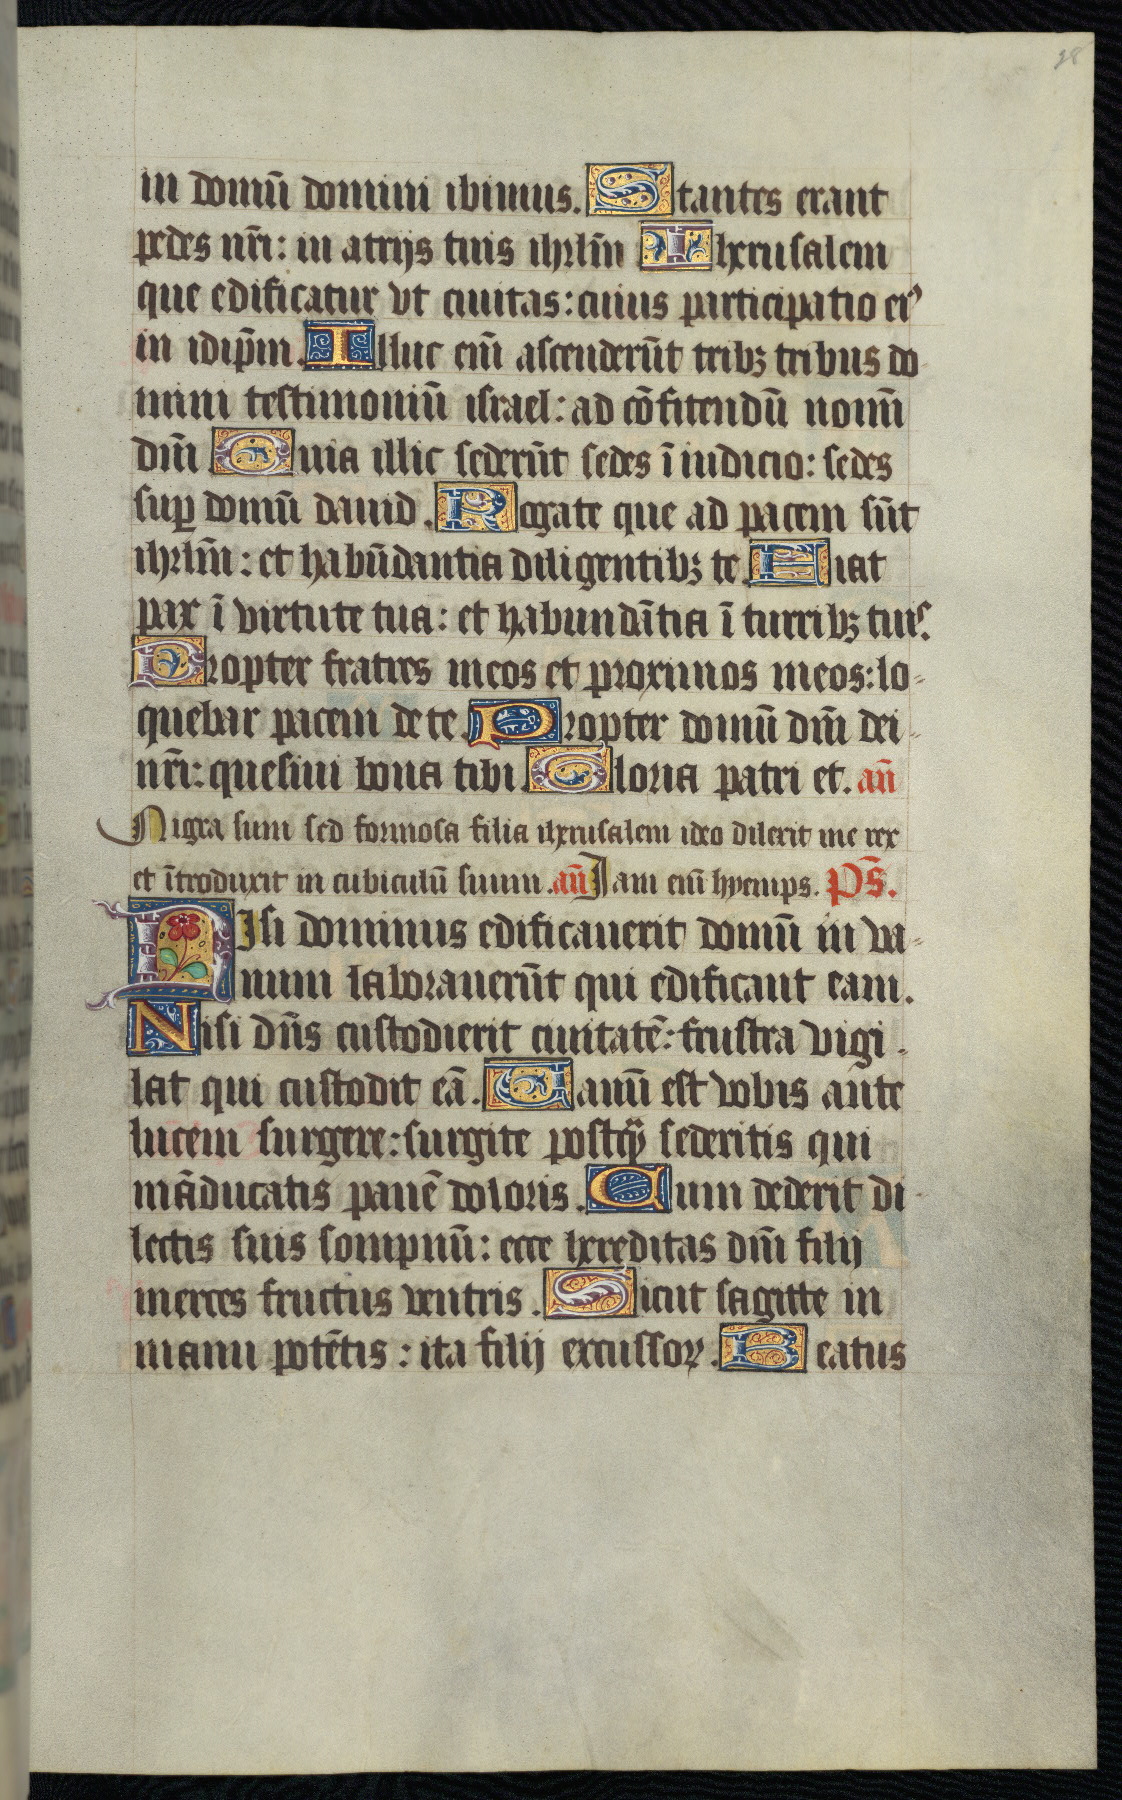 28
in domū domini ibimus. Stantes erant
pedes nr̄i: in atrijs tuis ihrl̄m Iherusalem
que edificatur vt ciuitas: cuius participatio ei⁹
in idip̄m. Illuc em̄ ascenderūt tribꝫ tribus do
mini testimoniū israel: ad cōfitendū nom̄
dn̄i Quia illic sederūt sedes ī iudicio: sedes
suꝑ domū dauid. Rogate que ad pacem sūt
ihrl̄m: et habūdantia diligentibꝫ te Fiat
pax ī virtute tua: et habundātia ī turribꝫ tuis.
Propter fratres meos et proximos meos: lo-
quebar pacem de te. Propter domū dn̄i dei-
nr̄i: quesiui bona tibi. Gloria patri et. an̄
Nigra sum sed formosa filia iherusalem ideo dilexit me rex
et ītroduxit in cubiculū suum. an̄ Iam em̄ hyemps. Ps̄.
NIsi dominus edificauerit domū in va-
num laborauerūt qui edificant eam.
Nisi dn̄s custodierit ciuitatē: frustra vigi-
lat qui custodit eā. Uanū est vobis ante
lucem surgere: surgite postꝙ̄ sederitis qui
māducatis panē doloris. Cum dederit di
lectis suis sompnū: ecce hereditas dn̄i filij
merces fructus ventris. Sicut sagitte in
manu potētis: ita filij excussoꝝ. Beatus